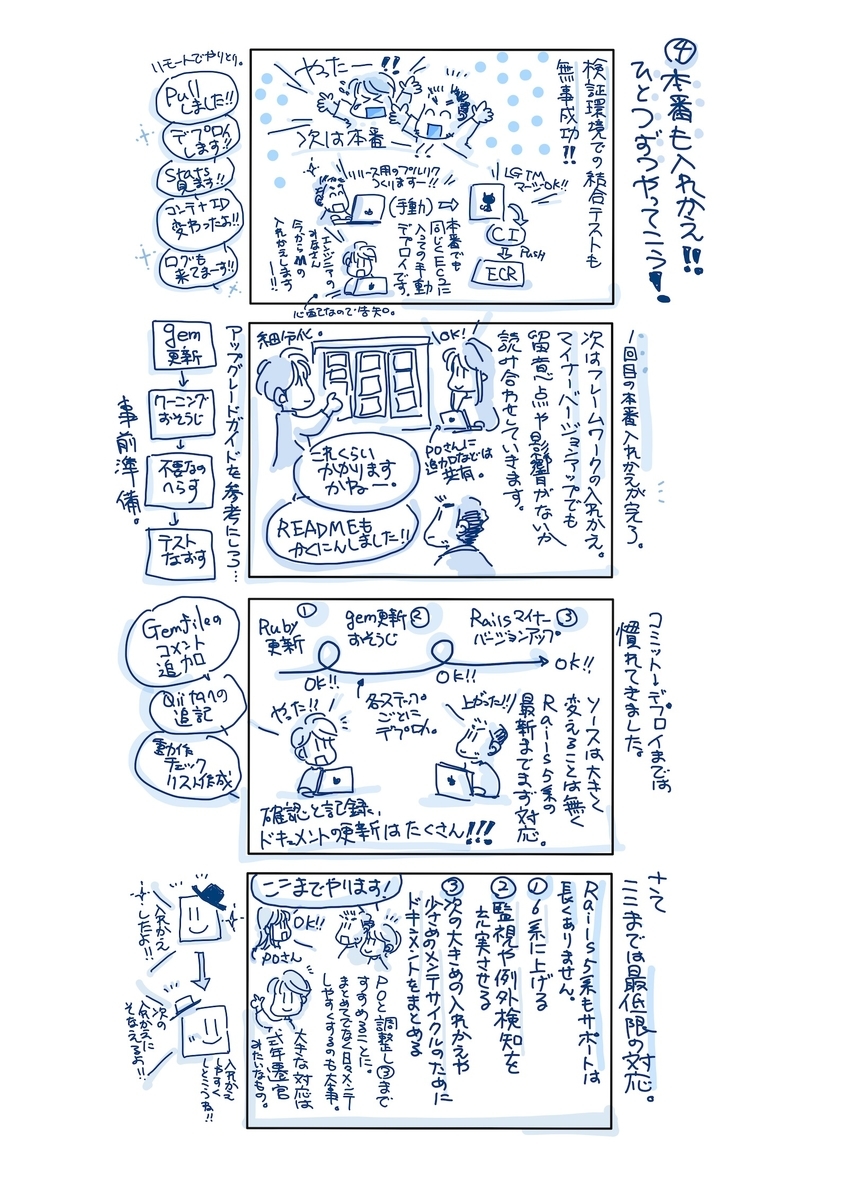 ④本番も入れかえ!!
ひとつずつやってこう!
リモートでやりとり。
Pull
しました!!
デプロイ
します!!
Stats
見ます!!
コンテナID
変わったよ!!
ログも
来てまーす!!
検証環境での結合テストも
無事成功!!
やったー!!
次は本番ー
リリース用のプルリク
つくりますー!!
(手動)
LGTM
マージOK!!
CI
Push
ECR
本番でも
同じくEC2に
入っての手動
デプロイです。
エンジニアの
みなさん
今からMの
入れかえします
ー!!
心配なので告知。
1回目の本番入れかえが完了。
次はフレームワークの入れかえ。
マイナーバージョンアップでも
留意点や影響がないか
読み合わせしていきます。
細分化。
OK!
POさんに
追加などは
共有。
これくらい
かかります
かねー。
READMEも
かくにんしました!!
アップグレードガイドを参考にしろ…
gem
更新
ワーニング
おそうじ
不要なの
へらす
テスト
なおす
事前準備。
コミット→デプロイまでは
慣れてきました。
① Ruby
更新
gem更新②
おそうじ
Railsマイナー③
バージョンアップ。
OK!!
OK!!
OK!!
各ステップ
ごとに
デプロイ。
やった!!
上がった!!
ソースは大きく
変えることは無く
Rails5系の
最新までまず対応。
確認と記録、
ドキュメントの更新はたくさん!!!
Gemfileの
コメント
追加
Qiitaへの
追記
動作
チェック
リスト作成
さて
ここまでは最低限の対応。
Rails5系もサポートは
長くありません。
①6系に上げる
②監視や例外検知を
充実させる
③次の大きめの入れかえや
少さめのメンテサイクルのために
ドキュメントをまとめる
ここまでやります!
OK!!
POさん
POと調整し③まで
すすめることに。
まとめてでなく日々メンテ
しやすくするのも大事。
大きな対応は
式年遷宮
みたいなもの。
入れかえ
したよ!!
次の
入れかえに
そなえるよ!!
入れかえ
しやすく
しとこうね!!